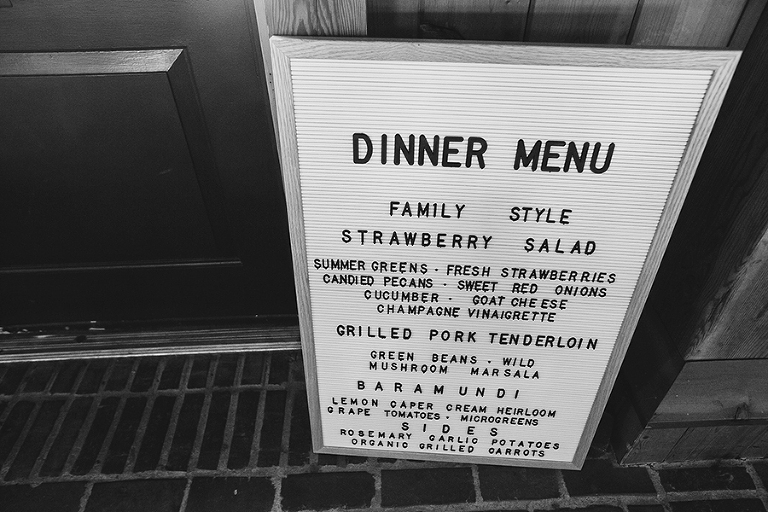 DINNER MENU
FAMILY STYLE
STRAWBERRY SALAD
SUMMER GREENS · FRESH STRAWBERRIES
CANDIED PECANS · SWEET RED ONIONS
CUCUMBER · GOAT CHEESE
CHAMPAGNE VINAIGRETTE
GRILLED PORK TENDERLOIN
GREEN BEANS · WILD
MUSHROOM MARSALA
BARAMUNDI
LEMON CAPER CREAM HEIRLOOM
GRAPE TOMATOES · MICROGREENS
SIDES
ROSEMARY GARLIC POTATOES
ORGANIC GRILLED CARROTS